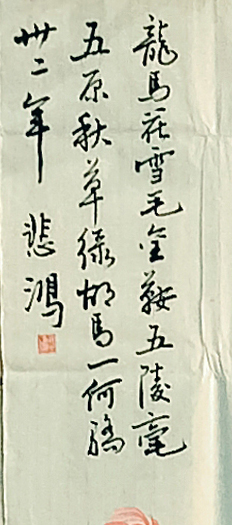 龍馬花雪毛金鞍五陵豪
五原秋草綠胡馬一何驕
卅二年 悲鴻